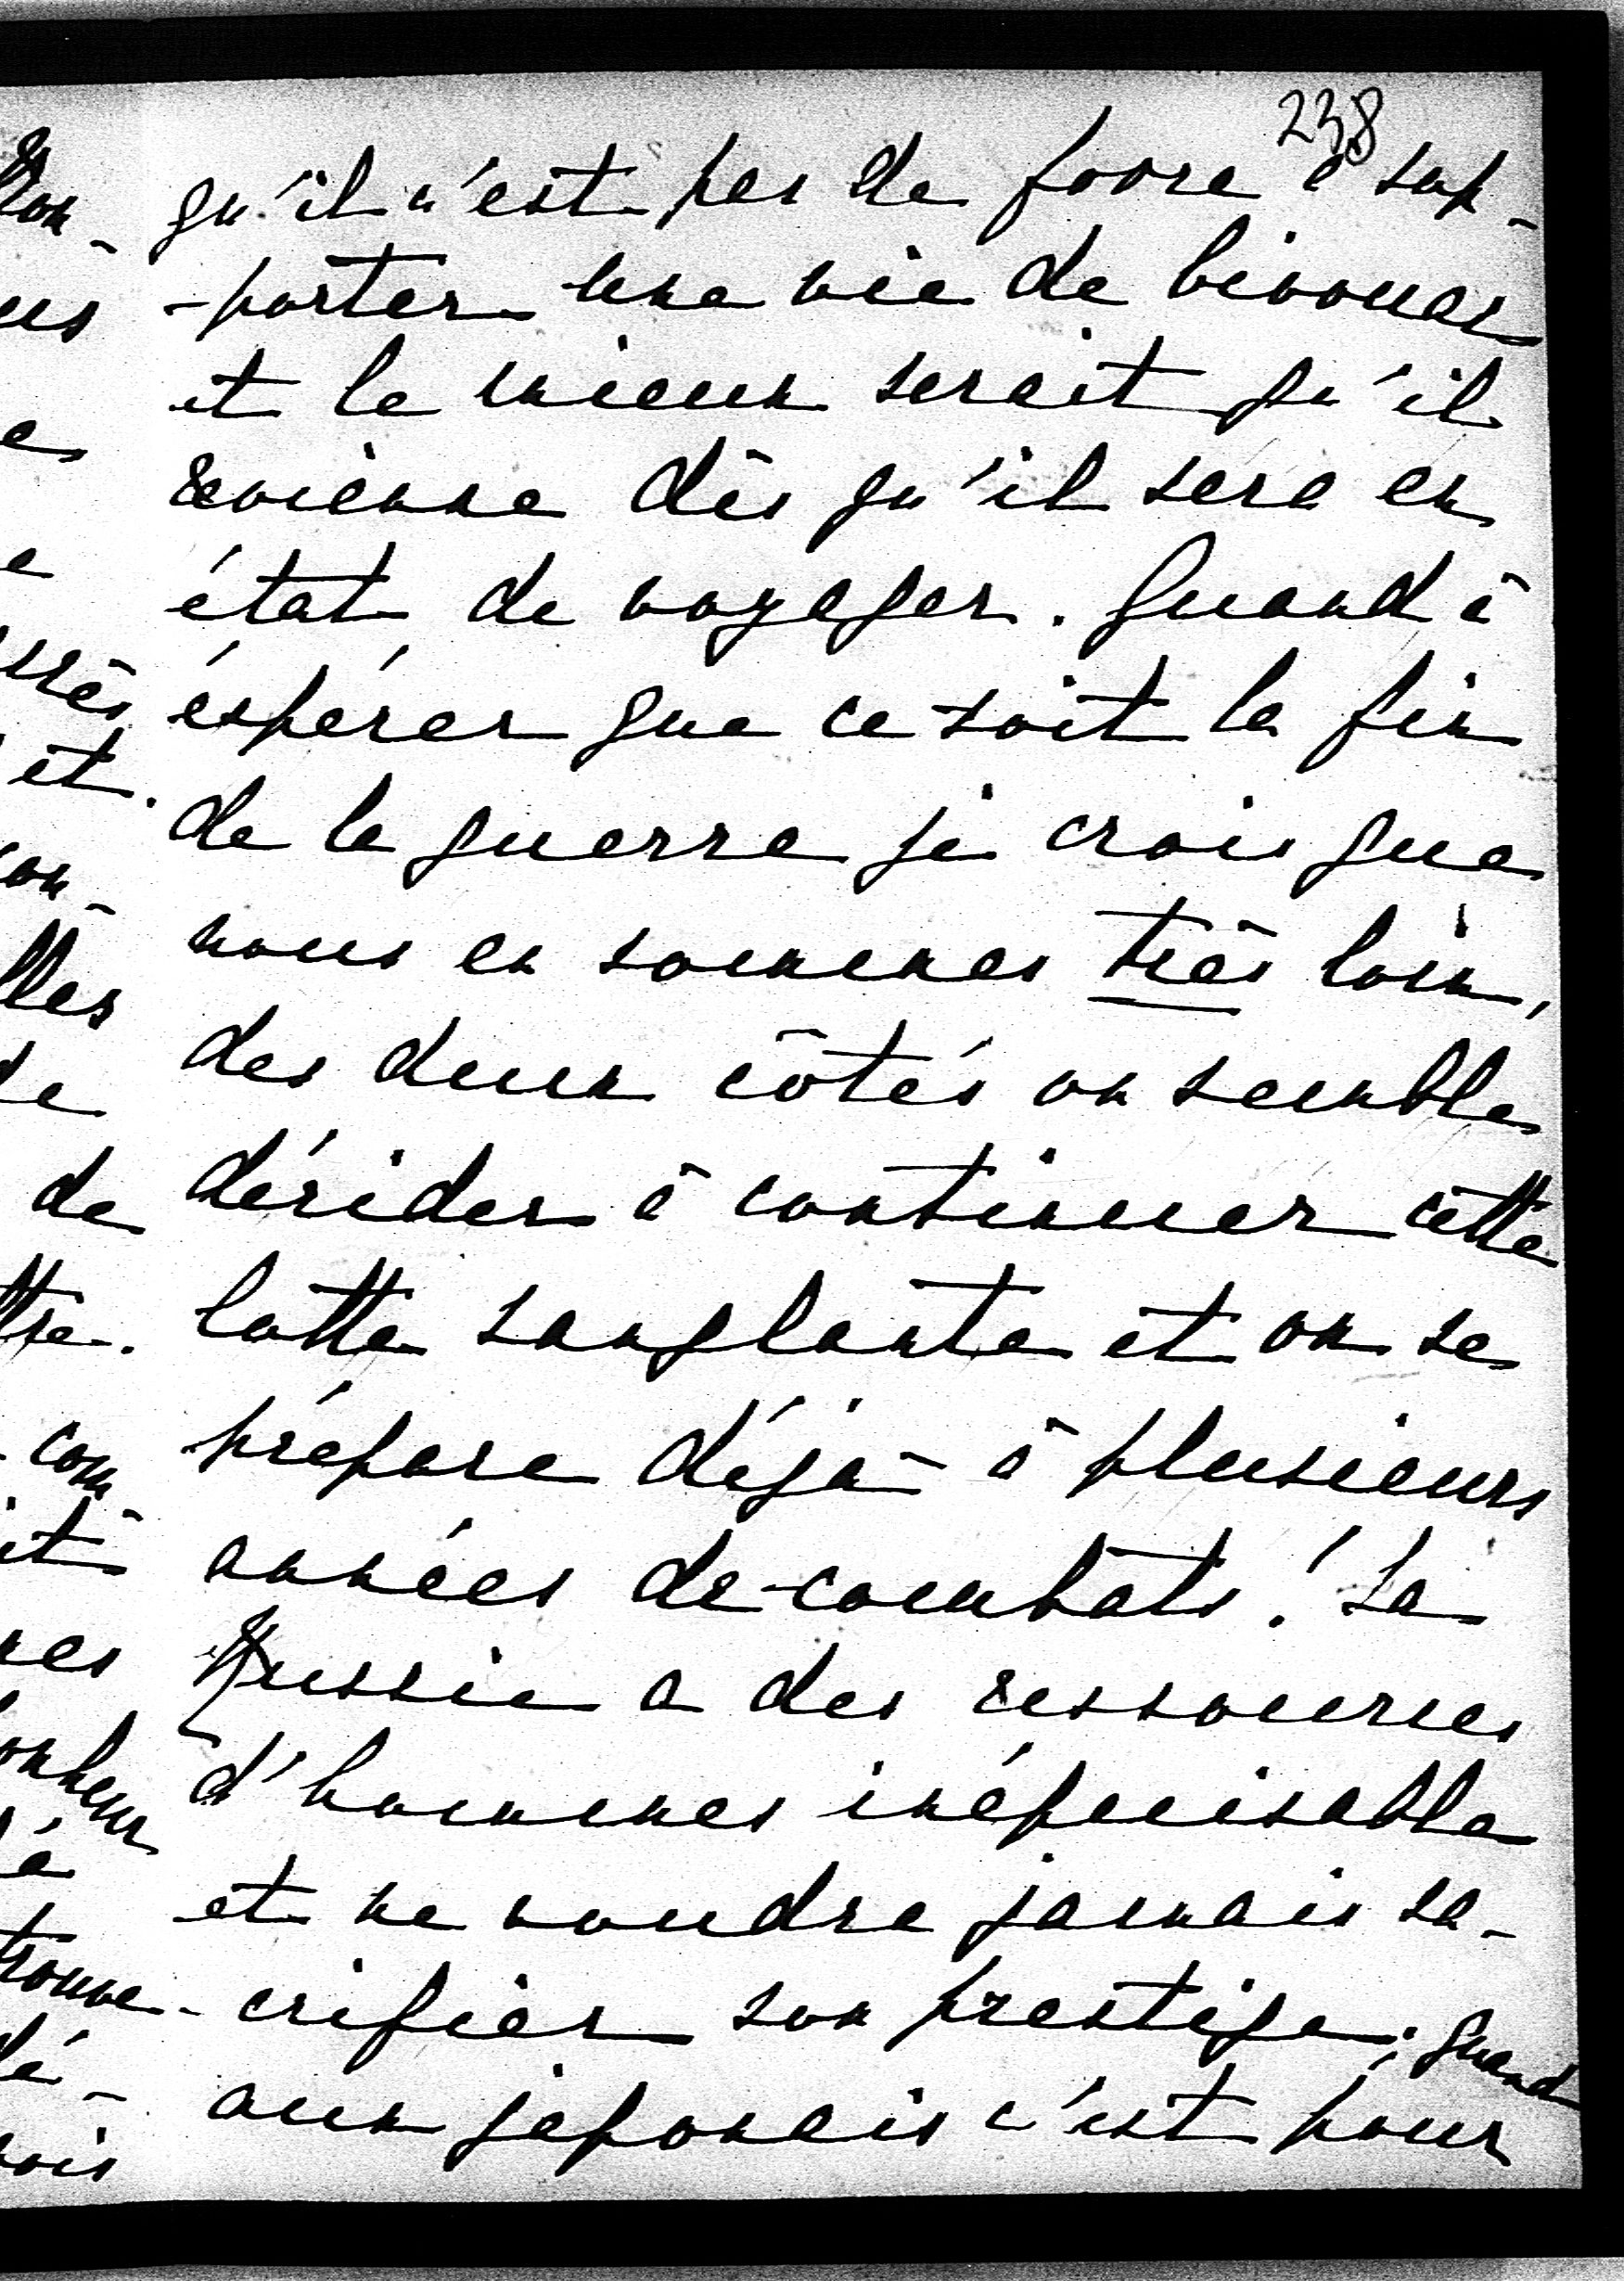 238
qu'il n'est pas de force à sup-
-porter une vie de bivouac
et le mieux serait qu'il
revienne dès qu'il sera en
état de voyager. Quand à
éspérer que ce soit la fin
de la guerre je crois que
nous en sommes très loin,
des deux côtés on semble
décider à continuer cette
lutte sanglante et on se
prépare déjà à plusieurs
années de combats! La
Russie a des ressources
d'hommes inépuisable
et ne voudra jamais sa-
-crifier son prestige; quand
aux japonais c'est pour